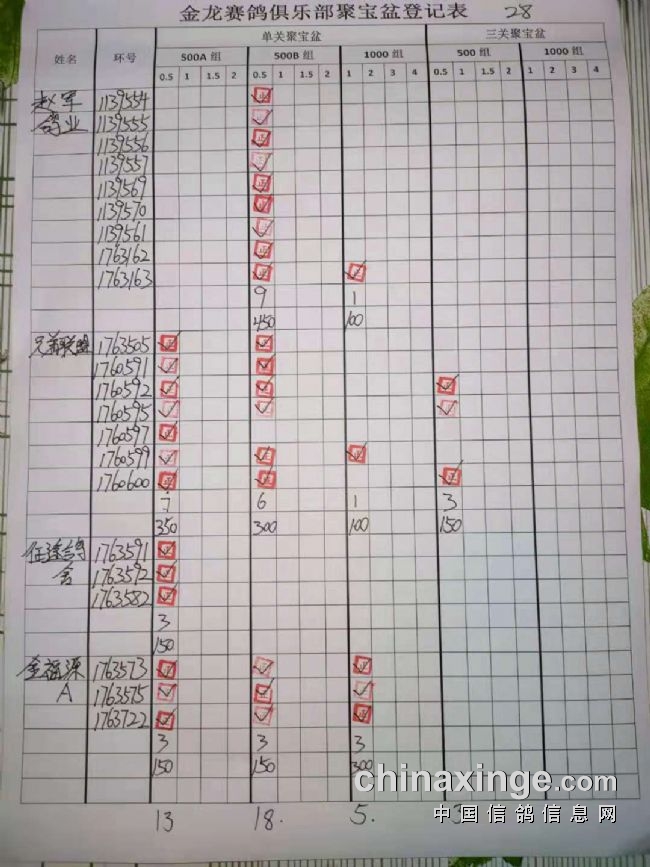 金龙赛鸽俱乐部聚宝盆登记表 28
姓名 环号 单关聚宝盆 三关聚宝盆
500A 组 500B 组 1000 组 500 组 1000 组
0.5 1 1.5 2 0.5 1 1.5 2 1 2 3 4 0.5 1 1.5 2 1 2 3 4
赵军 1139554
鸽业 1139555
1139556
1139557
1139569
1139570
1139561
1763162
1763163
9 1
450 100
兄弟联盟 1763505
1760591
1760592
1760595
1760597
1760599
1760600
7 6 1 3
350 300 100 150
鸽 1763591
舍 1763592
1763582
3
150
金福源 1763573
A 1763575
1763722
3 3 3
150 150 300
13 18. 5. 3
chinaxinge.com
中国信鸽信息网